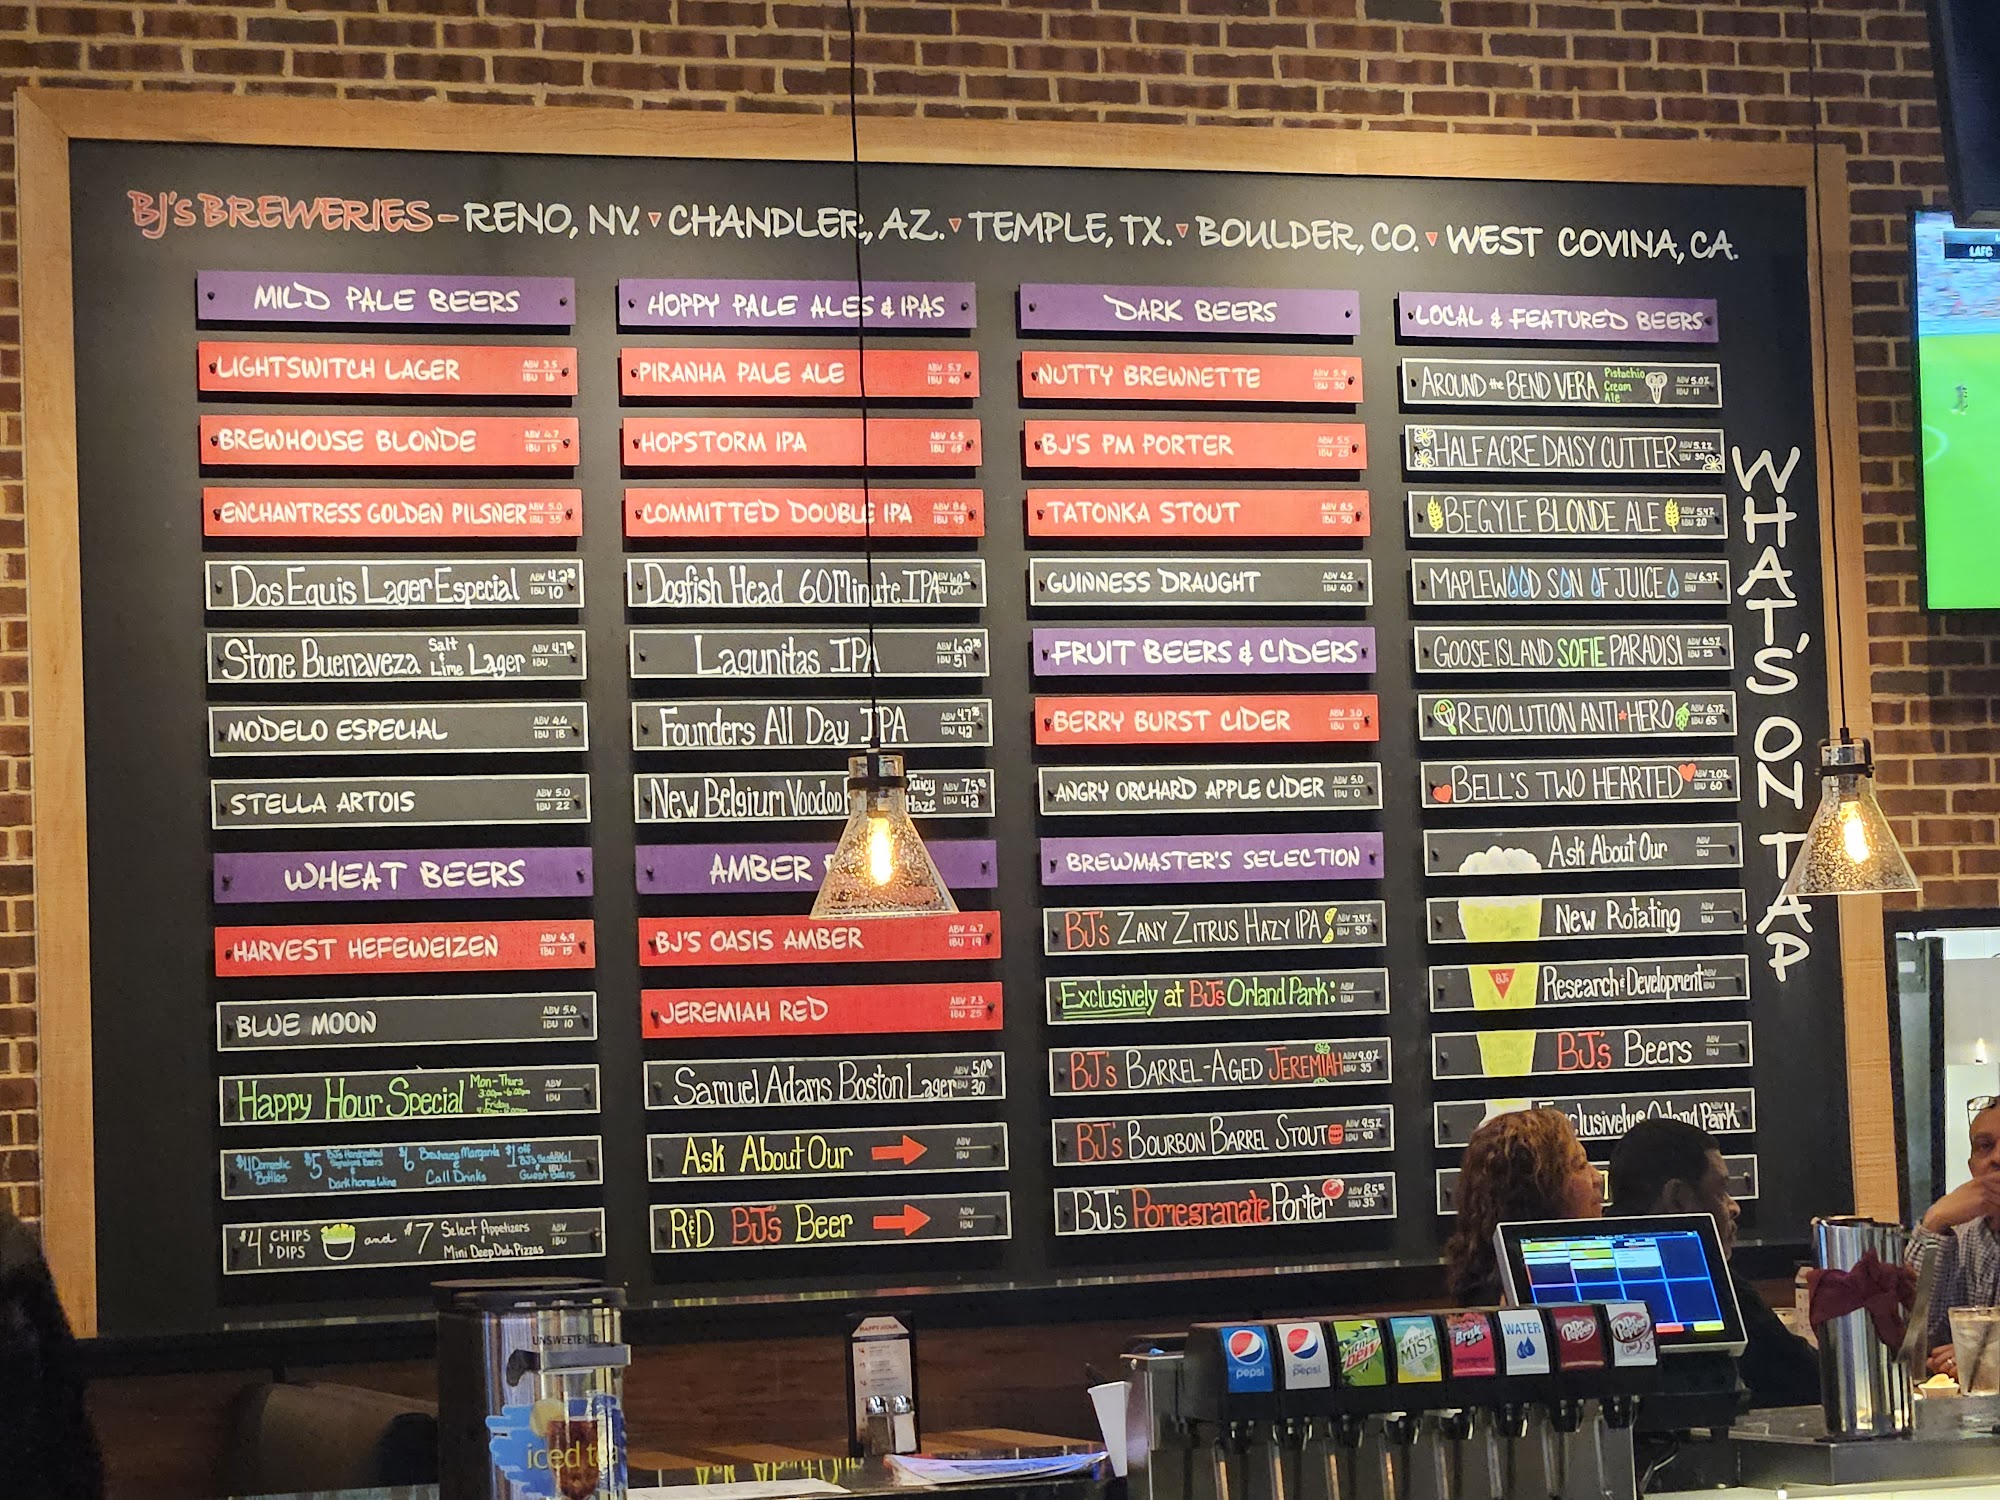 BJ'S BREWERIES – RENO, NV. ▾ CHANDLER, AZ. ▾ TEMPLE, TX. ▾ BOULDER, CO. ▾ WEST COVINA, CA.
MILD PALE BEERS
LIGHTSWITCH LAGER ABV 3.5 IBU 16
BREWHOUSE BLONDE ABV 4.7 IBU 15
ENCHANTRESS GOLDEN PILSNER ABV 5.0 IBU 35
Dos Equis Lager Especial ABV 4.2% IBU 10
Stone Buenaveza Salt & Lime Lager ABV 4.7% IBU
MODELO ESPECIAL ABV 4.4 IBU 18
STELLA ARTOIS ABV 5.0 IBU 22
WHEAT BEERS
HARVEST HEFEWEIZEN ABV 4.9 IBU 15
BLUE MOON ABV 5.4 IBU 10
Happy Hour Special Mon-Thurs 3:00pm-6:00pm Friday ABV IBU
$4 Domestic Bottles $5 BJ's Handcrafted Signature Beers Dark horse Wine $6 Brewhouse Margarita & Call Drinks $1 off Guest Beers
$4 CHIPS & DIPS and $7 Select Appetizers Mini Deep Dish Pizzas ABV IBU
HOPPY PALE ALES & IPAS
PIRANHA PALE ALE ABV 5.7 IBU 40
HOPSTORM IPA ABV 6.5 IBU 65
COMMITTED DOUBLE IPA ABV 8.6 IBU 95
Dogfish Head 60 Minute IPA ABV 6.0% IBU 60
Lagunitas IPA ABV 6.2% IBU 51
Founders All Day IPA ABV 4.7% IBU 42
New Belgium Voodoo Juicy Haze ABV 7.5% IBU 42
AMBER
BJ'S OASIS AMBER ABV 4.7 IBU 19
JEREMIAH RED ABV 7.3 IBU 25
Samuel Adams Boston Lager ABV 5.0% IBU 30
Ask About Our ABV IBU
R&D BJ's Beer ABV IBU
DARK BEERS
NUTTY BREWNETTE ABV 5.9 IBU 30
BJ'S PM PORTER ABV 5.5 IBU 25
TATONKA STOUT ABV 8.5 IBU 50
GUINNESS DRAUGHT ABV 4.2 IBU 40
FRUIT BEERS & CIDERS
BERRY BURST CIDER ABV 3.0 IBU 0
ANGRY ORCHARD APPLE CIDER ABV 5.0 IBU 0
BREWMASTER'S SELECTION
BJ's ZANY ZITRUS HAZY IPA ABV 7.4% IBU 50
Exclusively at BJ's Orland Park: ABV IBU
BJ's BARREL-AGED JEREMIAH ABV 9.0% IBU 35
BJ's BOURBON BARREL STOUT ABV 9.5% IBU 90
BJ's Pomegranate Porter ABV 8.5% IBU 35
LOCAL & FEATURED BEERS
AROUND the BEND VERA Pistachio Cream Ale ABV 5.0% IBU 11
HALF ACRE DAISY CUTTER ABV 5.2% IBU 30
BEGYLE BLONDE ALE ABV 5.4% IBU 20
MAPLEWOOD SON OF JUICE ABV 6.3% IBU
GOOSE ISLAND SOFIE PARADISI ABV 6.5% IBU 25
REVOLUTION ANTI*HERO ABV 6.7% IBU 65
BELL'S TWO HEARTED ABV 7.0% IBU 60
Ask About Our ABV IBU
New Rotating ABV IBU
BJ's Research & Development ABV IBU
BJ's Beers ABV IBU
Orland Park
WHAT'S ON TAP
LAFC
UNSWEETENED
iced tea
HAPPY HOUR
pepsi
pepsi
MIST
Brisk
WATER
Dr Pepper
Dr Pepper